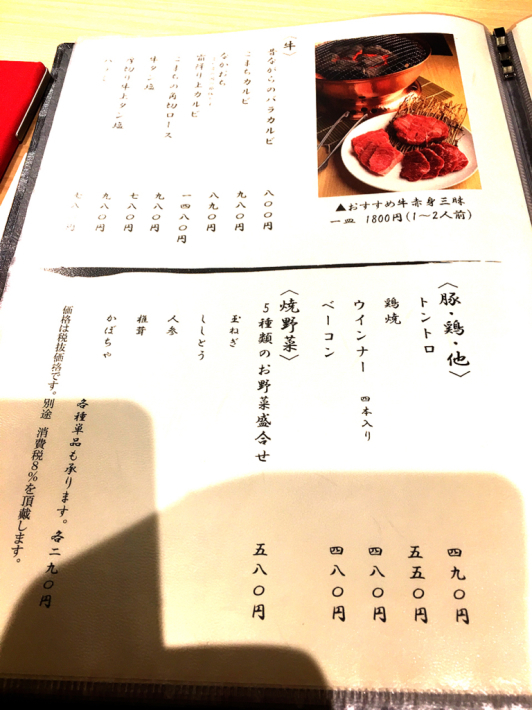 〈牛〉
昔ながらのバラカルビ 八〇〇円
こまちカルビ 九八〇円
なかおち 八九〇円
霜降り上カルビ 一四八〇円
こまちの角切ロース 九八〇円
牛タン塩 七八〇円
厚切り牛上タン塩 九八〇円
七八〇円
▲おすすめ牛赤身三昧
一皿 1800円(1〜2人前)
〈豚・鶏・他〉
トントロ 四九〇円
鶏焼 五五〇円
ウインナー 四本入り 四八〇円
ベーコン 四八〇円
〈焼野菜〉
5種類のお野菜盛合せ 五八〇円
玉ねぎ
ししとう
人参
椎茸
かぼちゃ
各種単品も承ります。各二九〇円
価格は税抜価格です。別途 消費税8%を頂戴します。